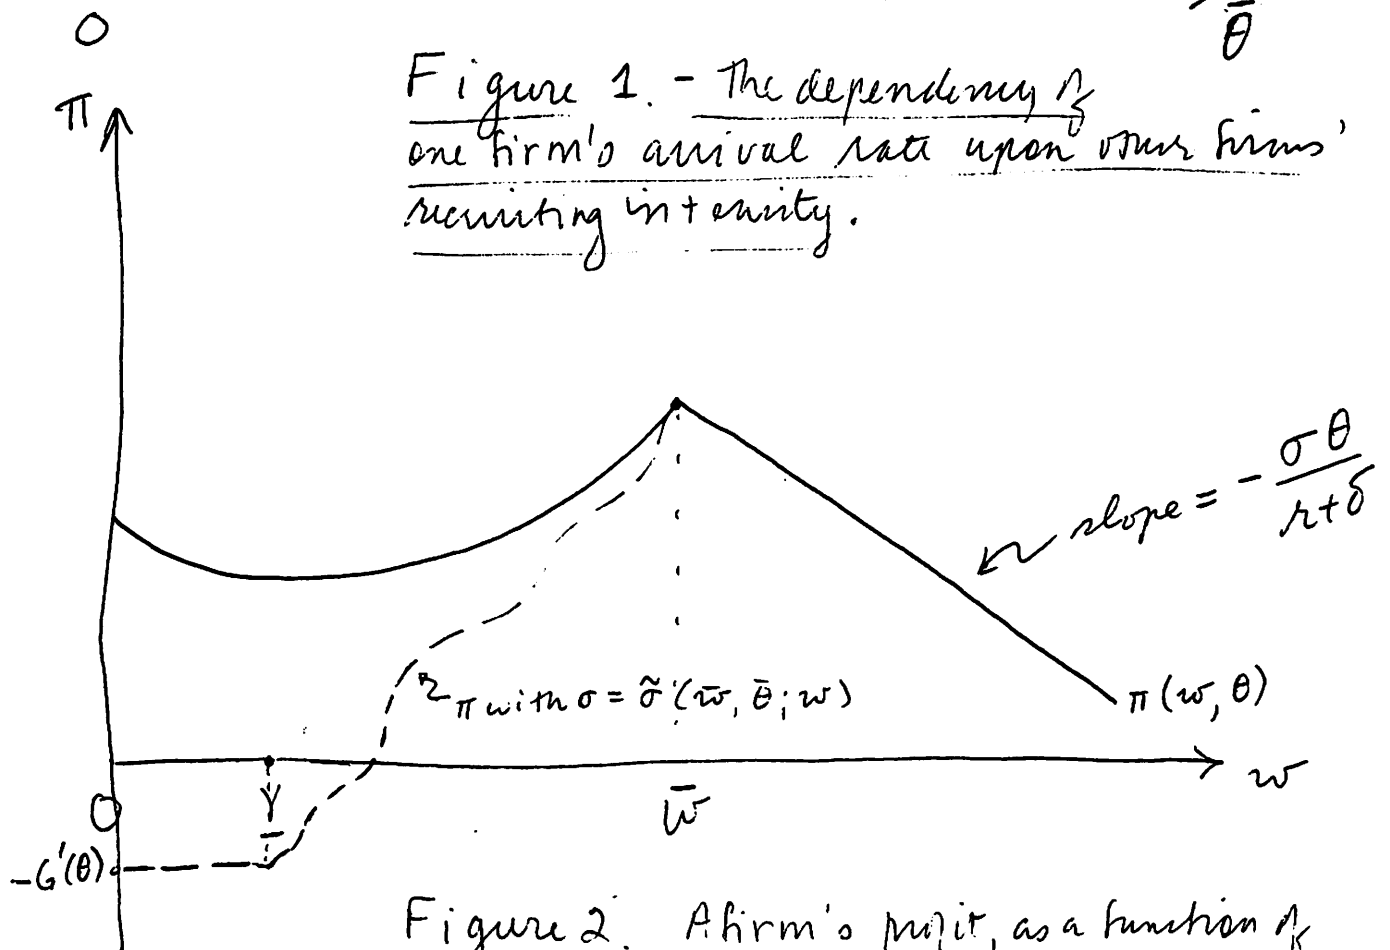 0
θ̄
Figure 1. - The dependency of
one firm's arrival rate upon other firms'
recruiting intensity.
π
slope = - σθ / r+δ
π with σ = σ̃ (w̄, θ̄; w)
π (w, θ)
w
0
w̄
-G'(θ)
Figure 2. A firm's profit, as a function of